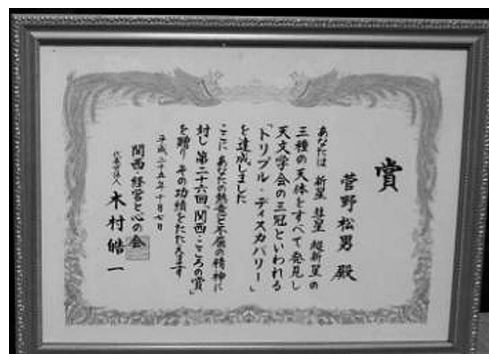 賞
菅野松男 殿
あなたは 新星 彗星 超新星の
三種の天体をすべて発見し
天文学会の三冠といわれる
「トリプル・ディスカバリー」
を達成しました
ここに あなたの熱意と不屈の精神に
対し 第二十六回「関西・こころの賞」
を贈り その功績をたたえます
平成二十五年十月七日
関西・経営と心の会
代表世話人 木村皓一